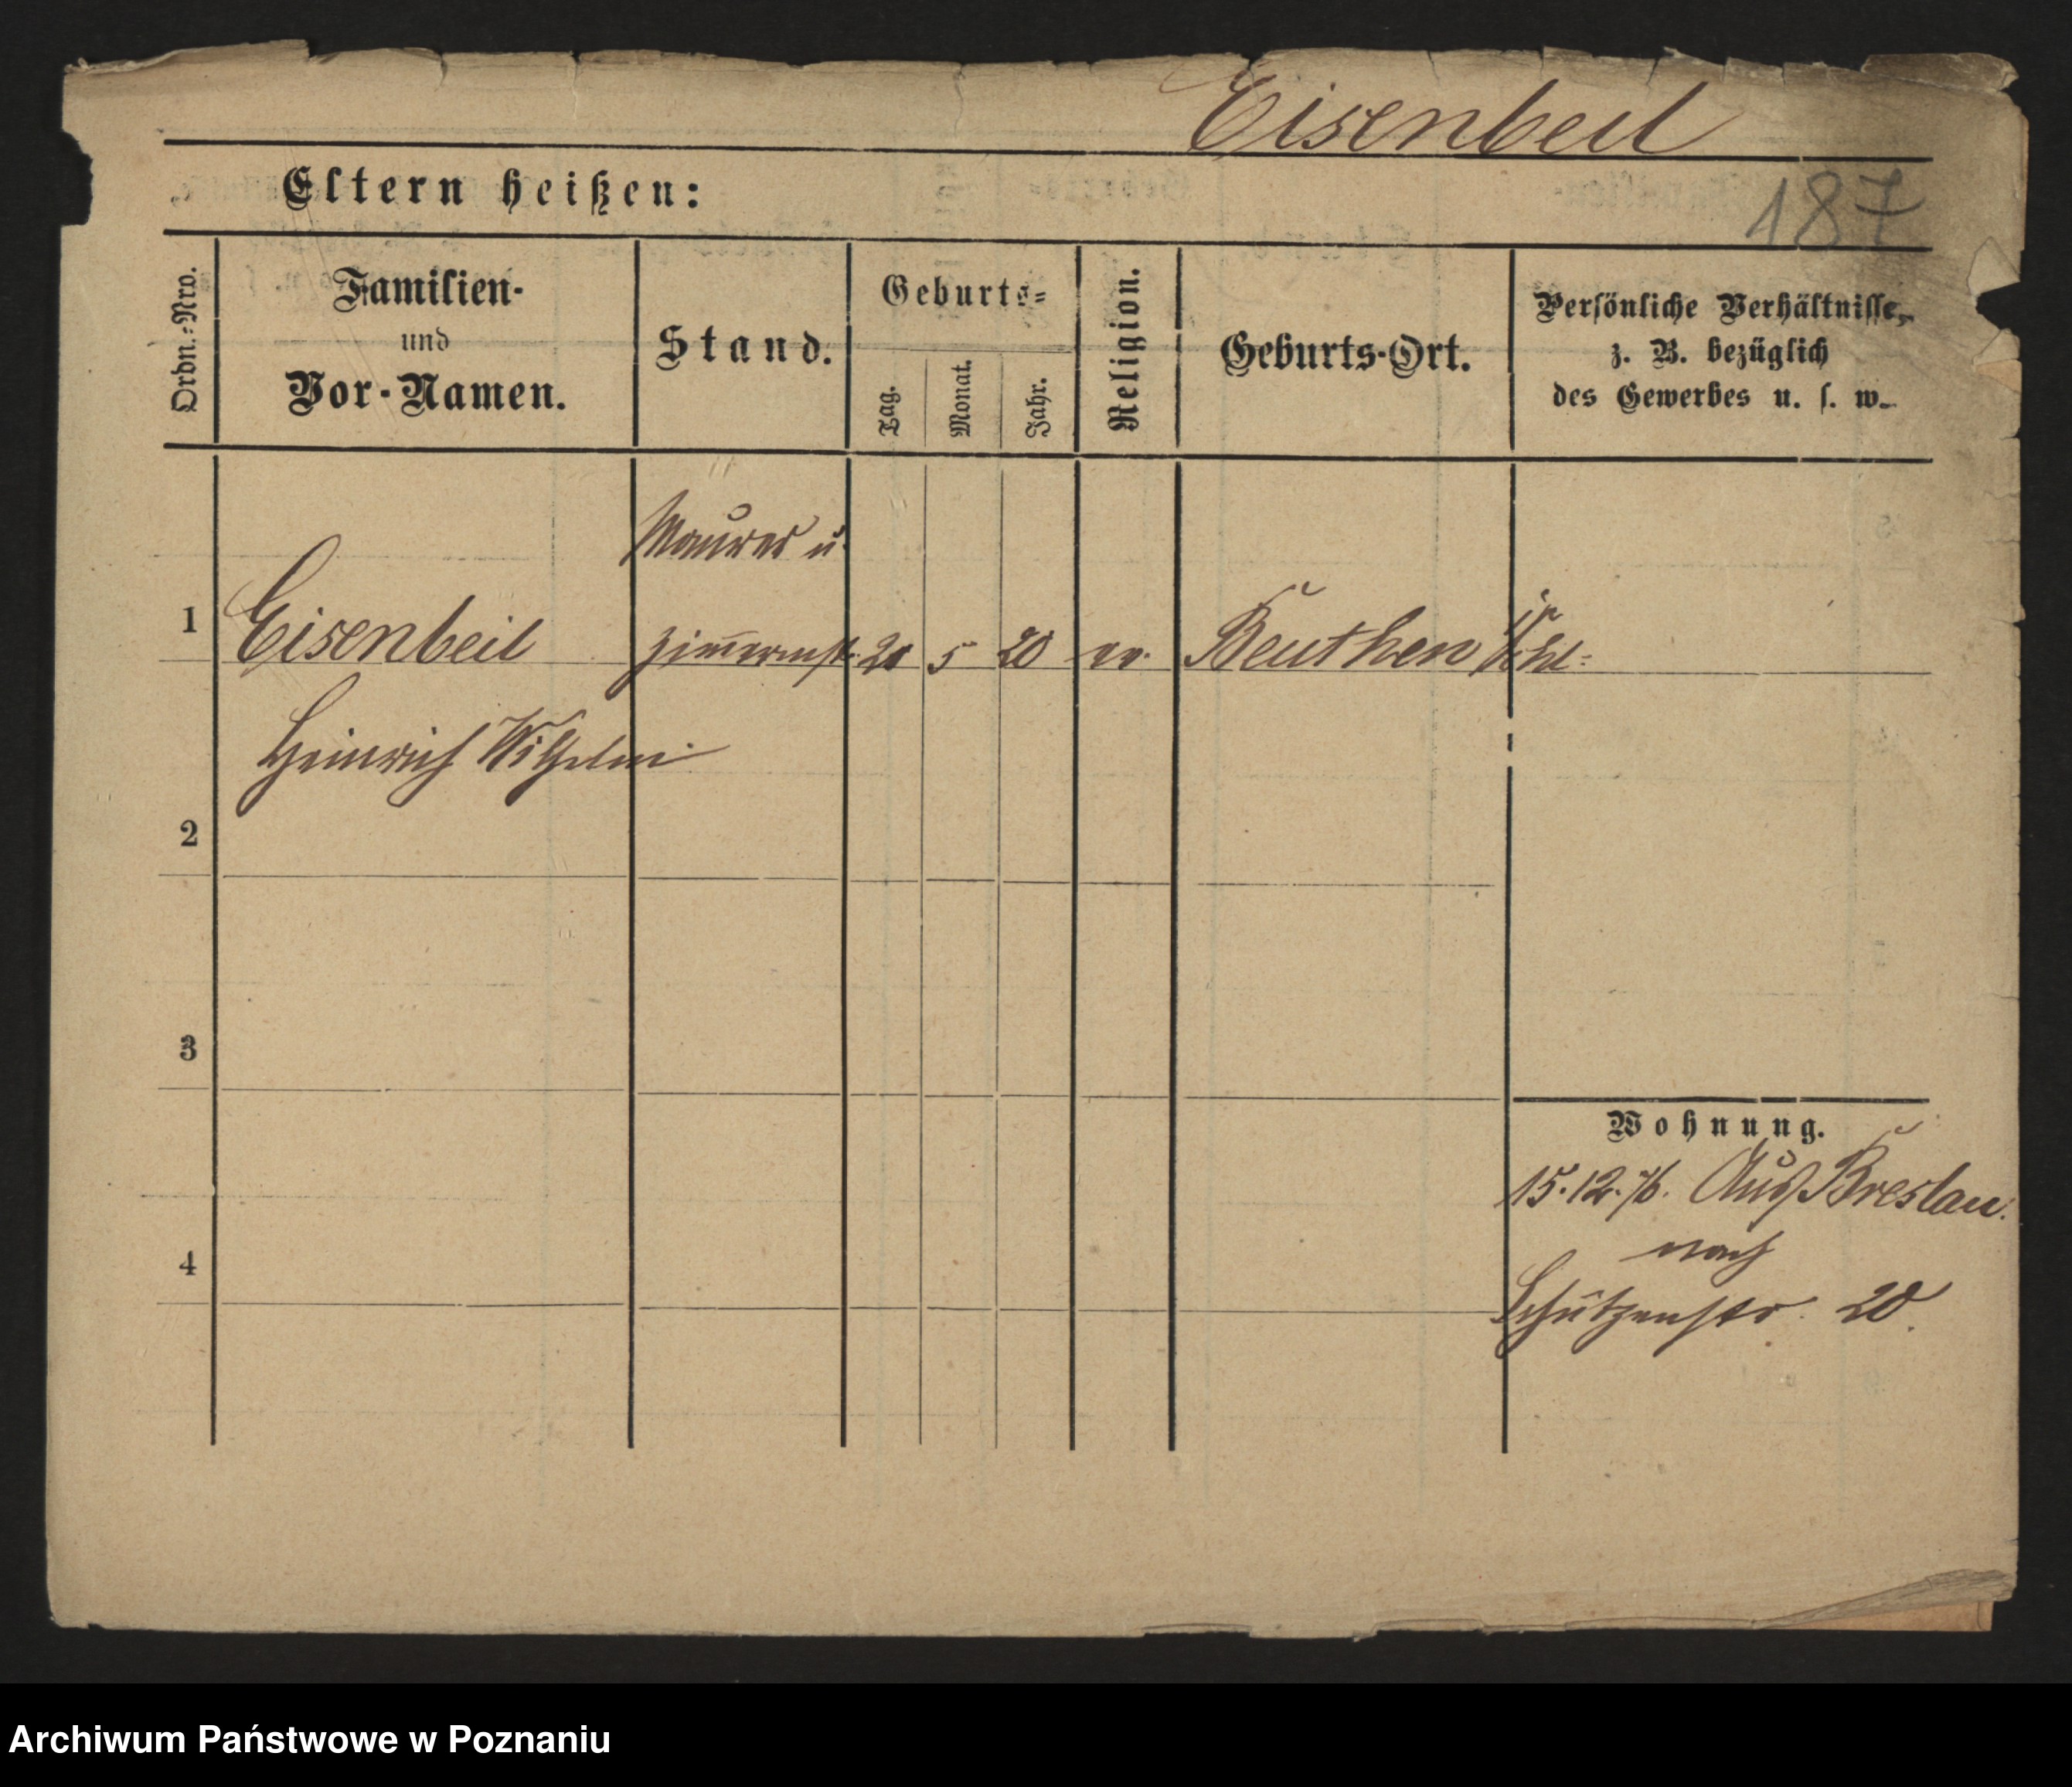 Eisenbeil
Eltern heißen:
187
Ordn.-Nro.
Familien-
und
Vor-Namen.
Stand.
Geburts-
Tag.
Monat.
Jahr.
Religion.
Geburts-Ort.
Persönliche Verhältnisse,
z. B. bezüglich
des Gewerbes u. s. w.
Maurer u.
1 Eisenbeil Zim̅ermstr. 20 5 20 ev. Beuthen
Heinrich Wilhelm
2
3
Wohnung.
15.12.76. Aus Breslau.
nach
4
Schützenstr. 20.
Archiwum Państwowe w Poznaniu